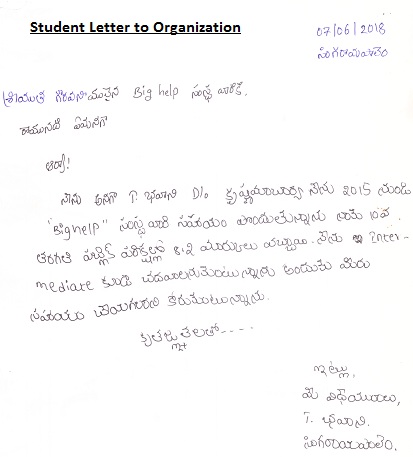 Student Letter to Organization
07/06/2018
సింగరాయపాలెం
శ్రీయుత గౌరవనీయులైన Big help సంస్థ వారికి.
రాయునది ఏమనగా
ఆర్యా!
నేను అనగా T. భవాని D/o కృష్ణమూర్తి నేను 2015 నుండి
"Bighelp" సంస్థ వారి సహాయం పొందుతున్నాను నాకు 10వ
తరగతి పబ్లిక్ పరీక్షల్లో 8.2 మార్కులు వచ్చాయి. నేను Inter-
mediate కూడా చదవాలనుకుంటున్నాను అందుకు మీరు
సహాయం చేయగలరని కోరుకుంటున్నాను.
కృతజ్ఞతలతో----
ఇట్లు,
మీ విధేయురాలు,
T. భవాని.
సింగరాయపాలెం.